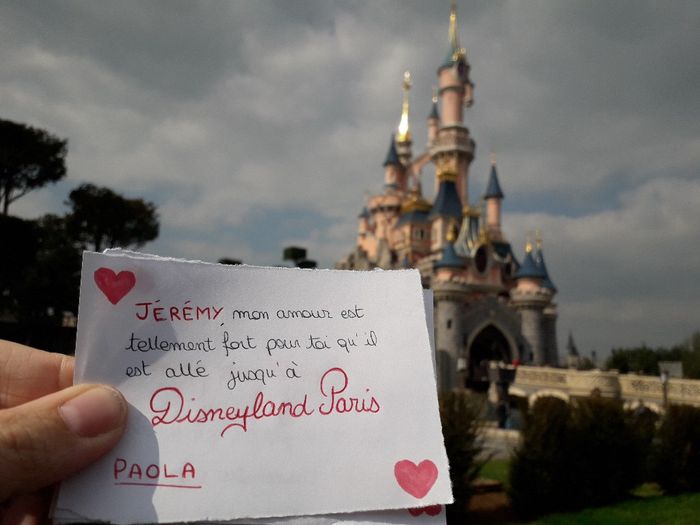 JÉRÉMY mon amour est
tellement fort pour toi qu'il
est allé jusqu'à
Disneyland Paris
PAOLA